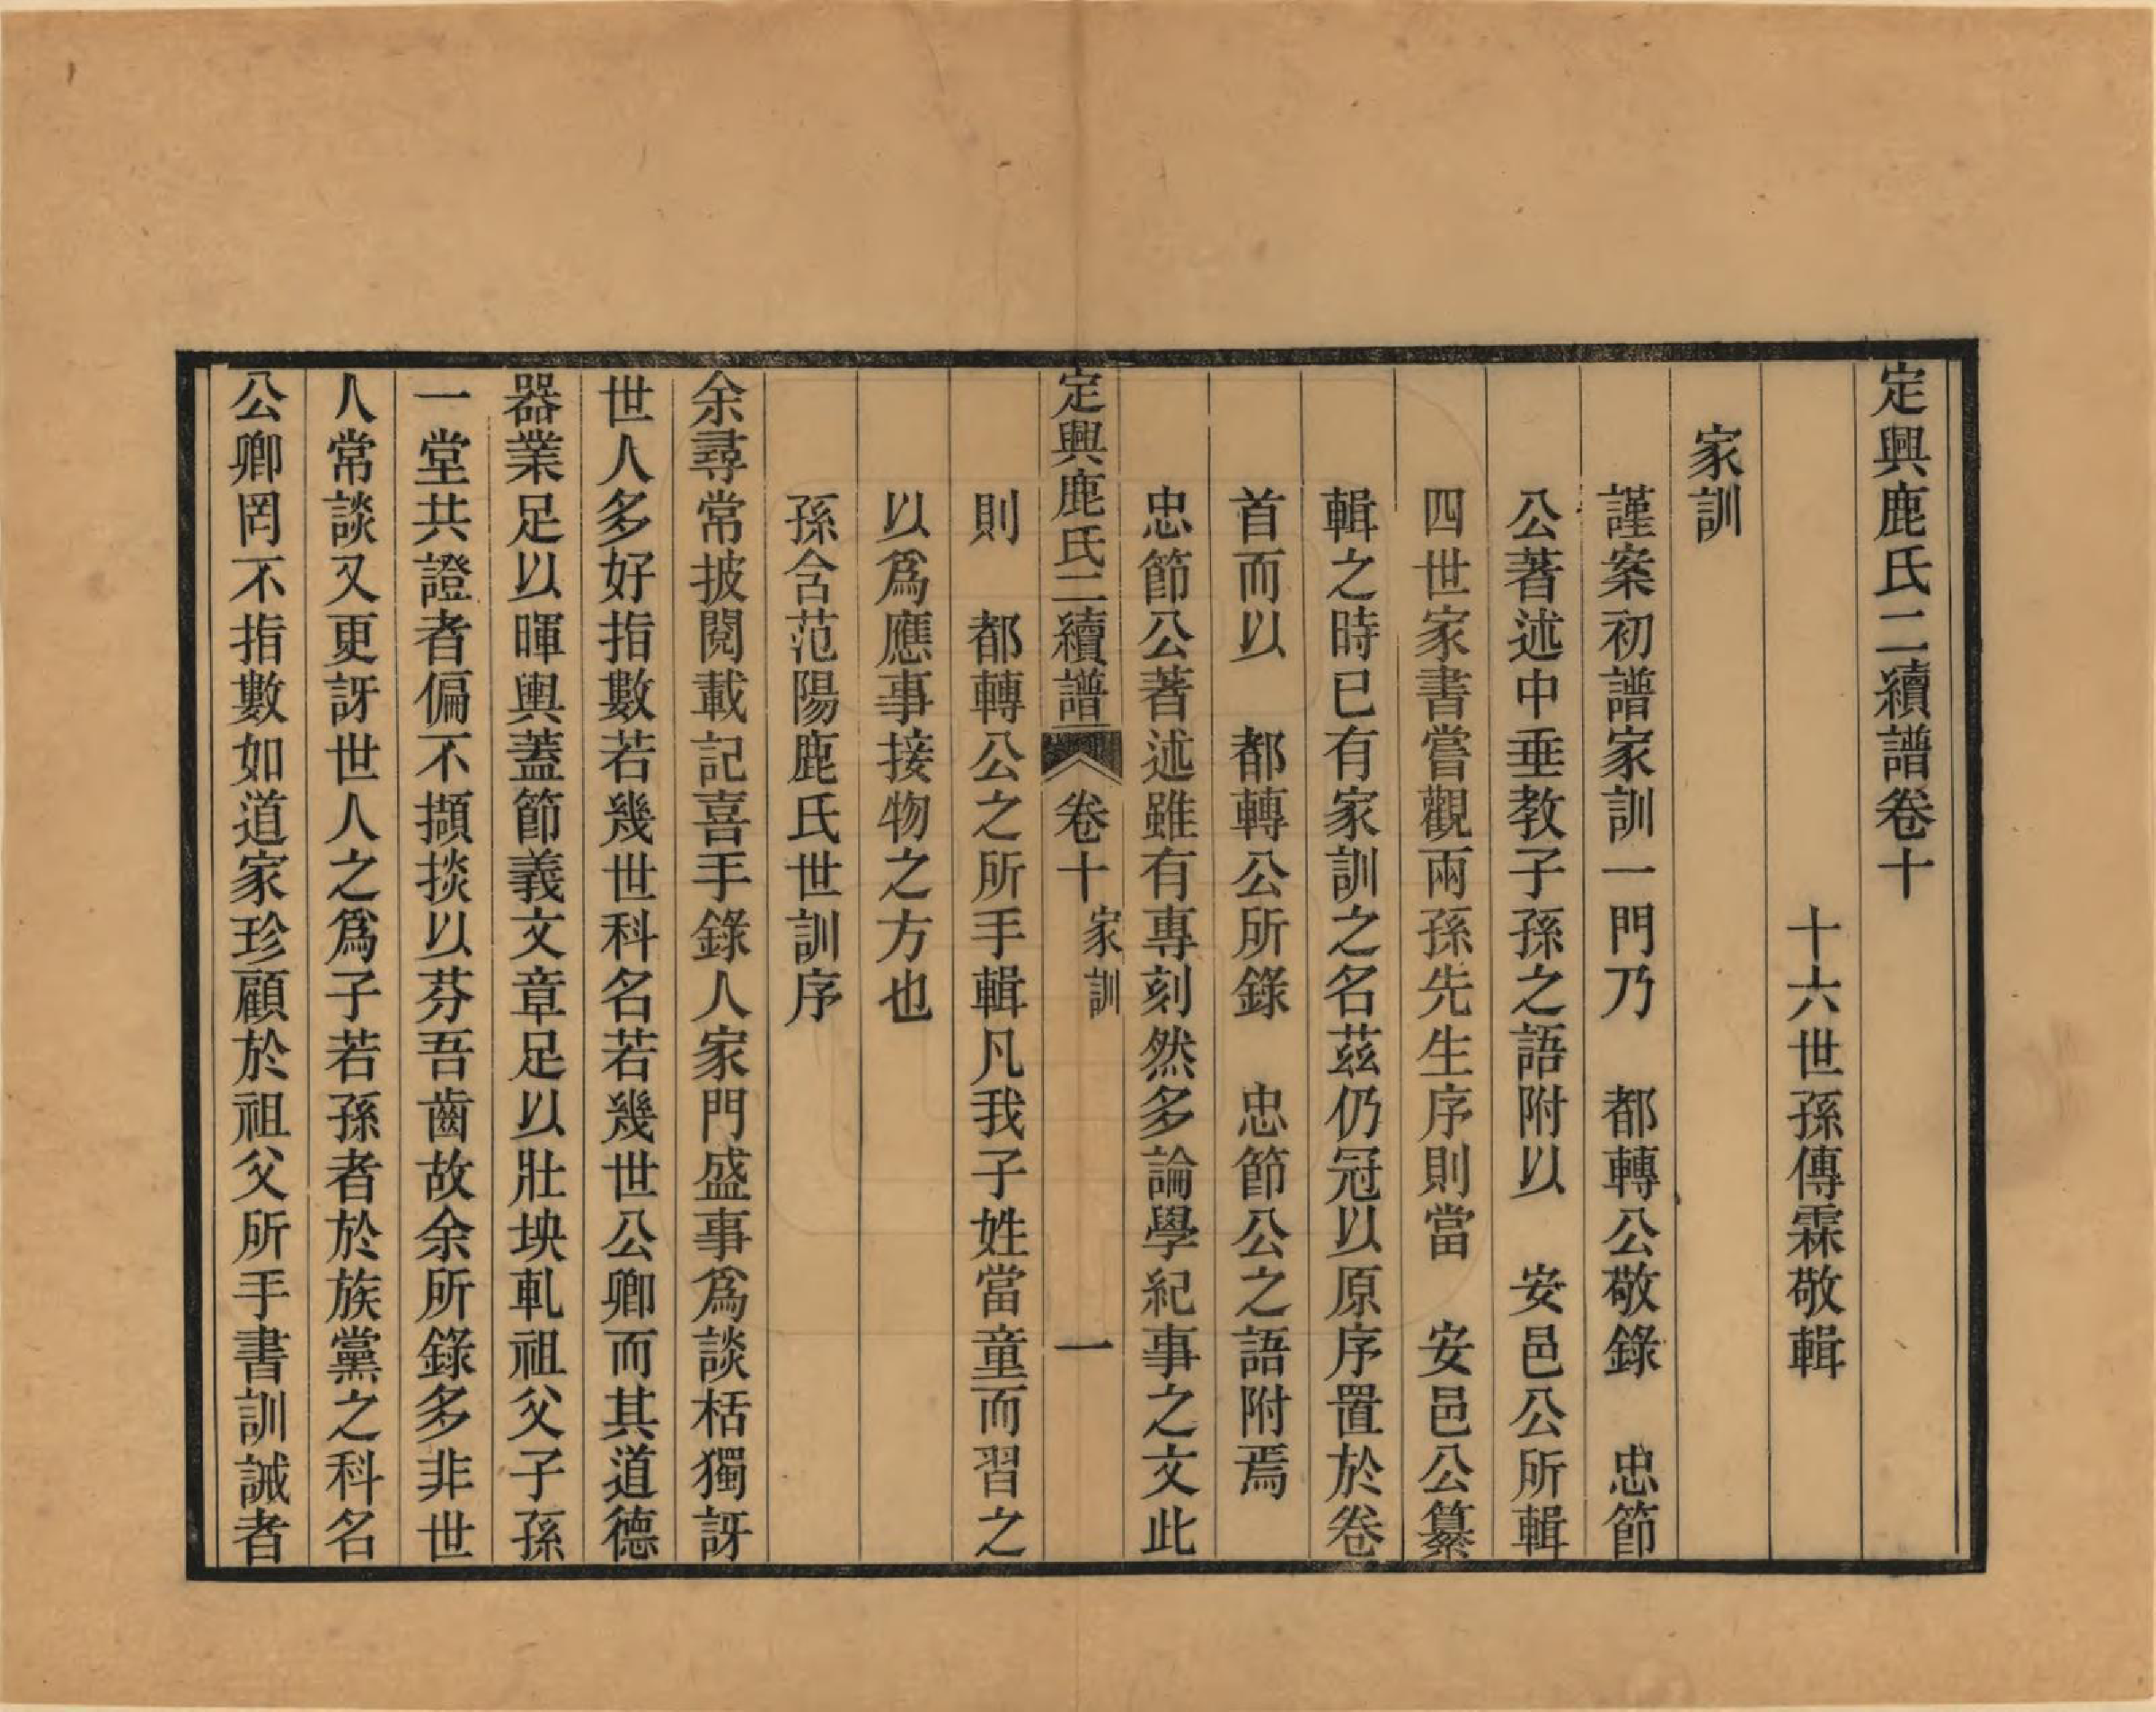 定興鹿氏二續譜卷十
十六世孫傳霖敬輯
家訓
謹案初譜家訓一門乃　都轉公敬錄　忠節
公著述中垂教子孫之語附以　安邑公所輯
四世家書嘗觀兩孫先生序則當　安邑公纂
輯之時已有家訓之名茲仍冠以原序置於卷
首而以　都轉公所錄　忠節公之語附焉
忠節公著述雖有專刻然多論學紀事之文此
定興鹿氏二續譜　卷十　家訓　一
則　都轉公之所手輯凡我子姓當童而習之
以爲應事接物之方也
孫含范陽鹿氏世訓序
余尋常披閱載記喜手錄人家門盛事爲談栝獨訝
世人多好指數若幾世科名若幾世公卿而其道德
器業足以暉輿蓋節義文章足以壯坱軋祖父子孫
一堂共證者偏不擷掞以芬吾齒故余所錄多非世
人常談又更訝世人之爲子若孫者於族黨之科名
公卿罔不指數如道家珍顧於祖父所手書訓誡者